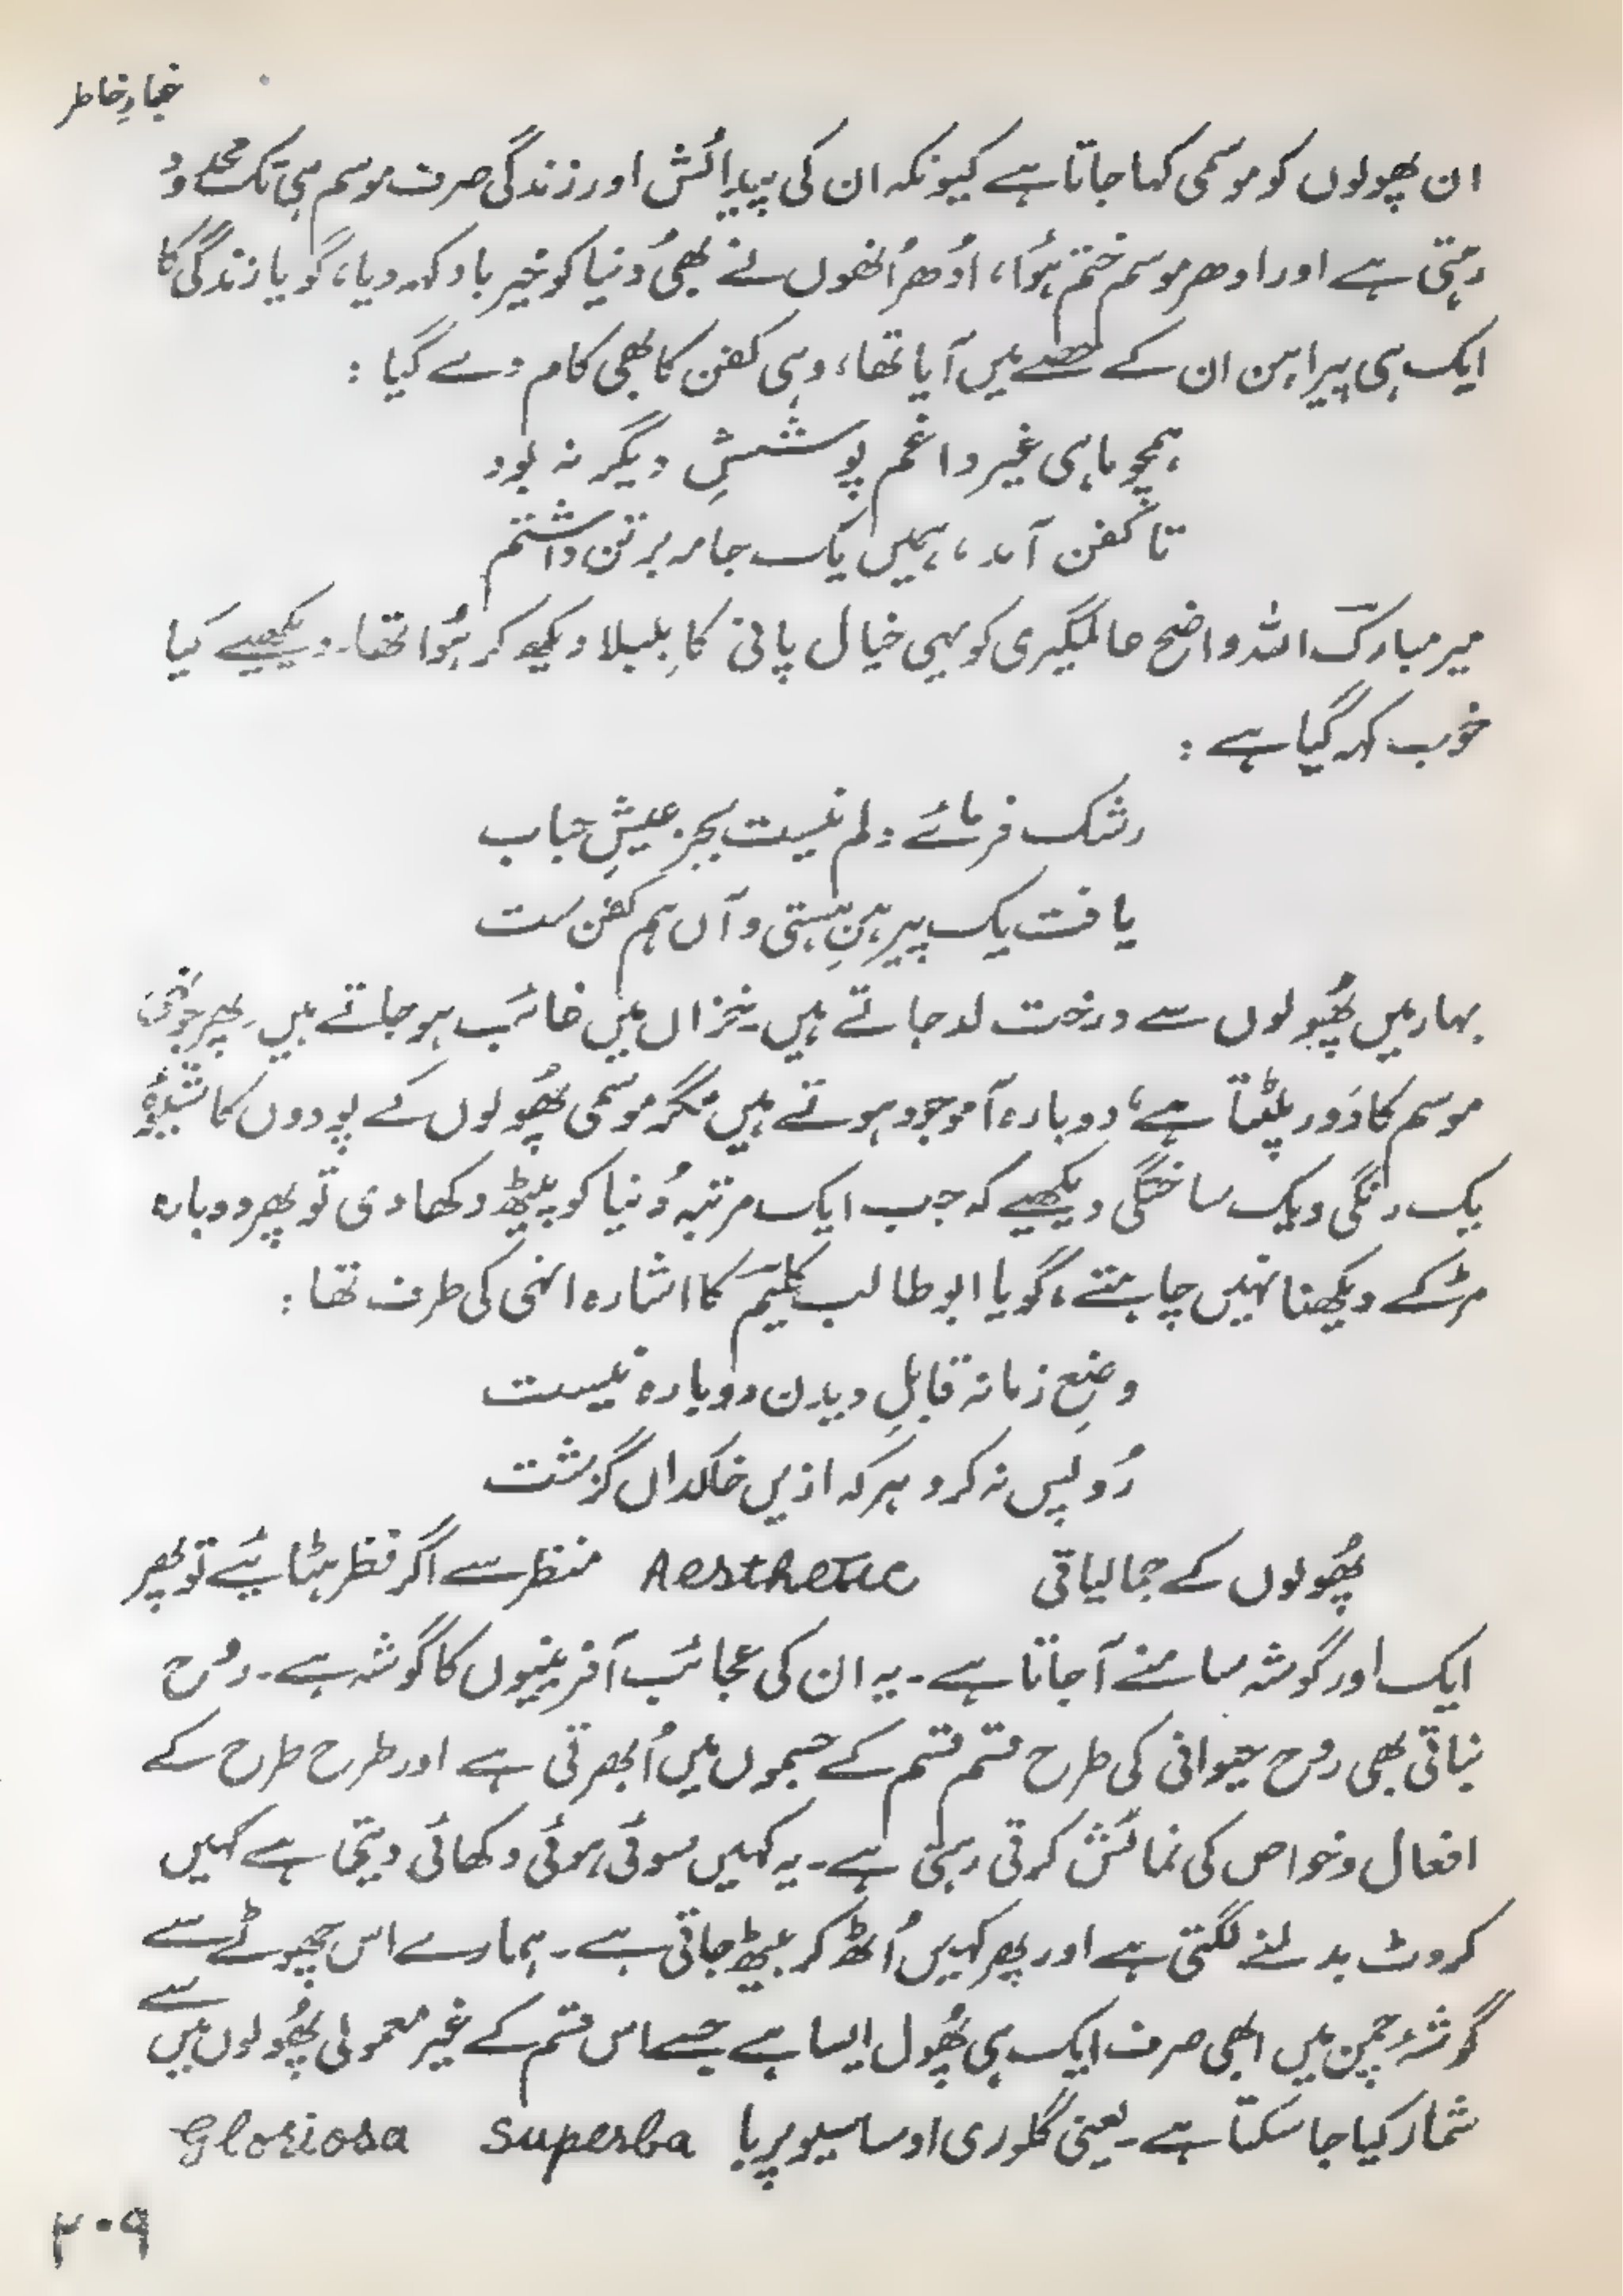 غبارِ خاطر
ان پھولوں کو موسمی کہا جاتا ہے کیونکہ ان کی پیدائش اور زندگی صرف موسم ہی تک محدود
رہتی ہے اور ادھر موسم ختم ہُوا، اُدھر اُنھوں نے بھی دُنیا کو خیر باد کہہ دیا، گویا زندگی کا
ایک ہی پیراہن ان کے حصے میں آیا تھا، وہی کفن کا بھی کام دے گیا :
ہمچو ماہی غیر داغم پوششِ دیگر نہ بود
تا کفن آمد، ہمیں یک جامہ بر تن داشتم
میر مبارک اللہ واضح عالمگیری کو یہی خیال پانی کا بلبلا دیکھ کر ہُوا تھا۔ دیکھیے کیا
خوب کہہ گیا ہے :
رشک فرمائے دلم نیست بجز عیشِ حباب
یافت یک پیرہنِ ہستی و آں ہم کفن ست
بہار میں پھُولوں سے درخت لد جاتے ہیں۔ خزاں میں غائب ہو جاتے ہیں۔ پھر جونہی
موسم کا دَور پلٹتا ہے، دوبارہ آموجود ہوتے ہیں مگر موسمی پھُولوں کے پودوں کا شیوۂ
یک رنگی و یک ساختگی دیکھیے کہ جب ایک مرتبہ دُنیا کو پیٹھ دکھا دی تو پھر دوبارہ
مڑ کے دیکھنا نہیں چاہتے، گویا ابو طالب کلیم کا اشارہ انہی کی طرف تھا :
وضعِ زمانہ قابلِ دیدن دوبارہ نیست
رُو پس نہ کرد ہر کہ ازیں خاکداں گزشت
پھُولوں کے جمالیاتی Aesthetic منظر سے اگر نظر ہٹائیے تو پھر
ایک اور گوشہ سامنے آجاتا ہے۔ یہ ان کی عجائب آفرینیوں کا گوشہ ہے۔ روُح
نباتی بھی روُح حیوانی کی طرح قسم قسم کے جسموں میں اُبھرتی ہے اور طرح طرح کے
افعال و خواص کی نمائش کرتی رہتی ہے۔ یہ کہیں سوئی ہوئی دکھائی دیتی ہے کہیں
کروٹ بدلنے لگتی ہے اور پھر کہیں اُٹھ کر بیٹھ جاتی ہے۔ ہمارے اس چھوٹے سے
گوشۂ چمن میں ابھی صرف ایک ہی پھُول ایسا ہے جسے اس قسم کے غیر معمولی پھُولوں میں سے
شمار کیا جا سکتا ہے۔ یعنی گلوری اوسا سیوپربا Gloriosa Superba
۲۰۹